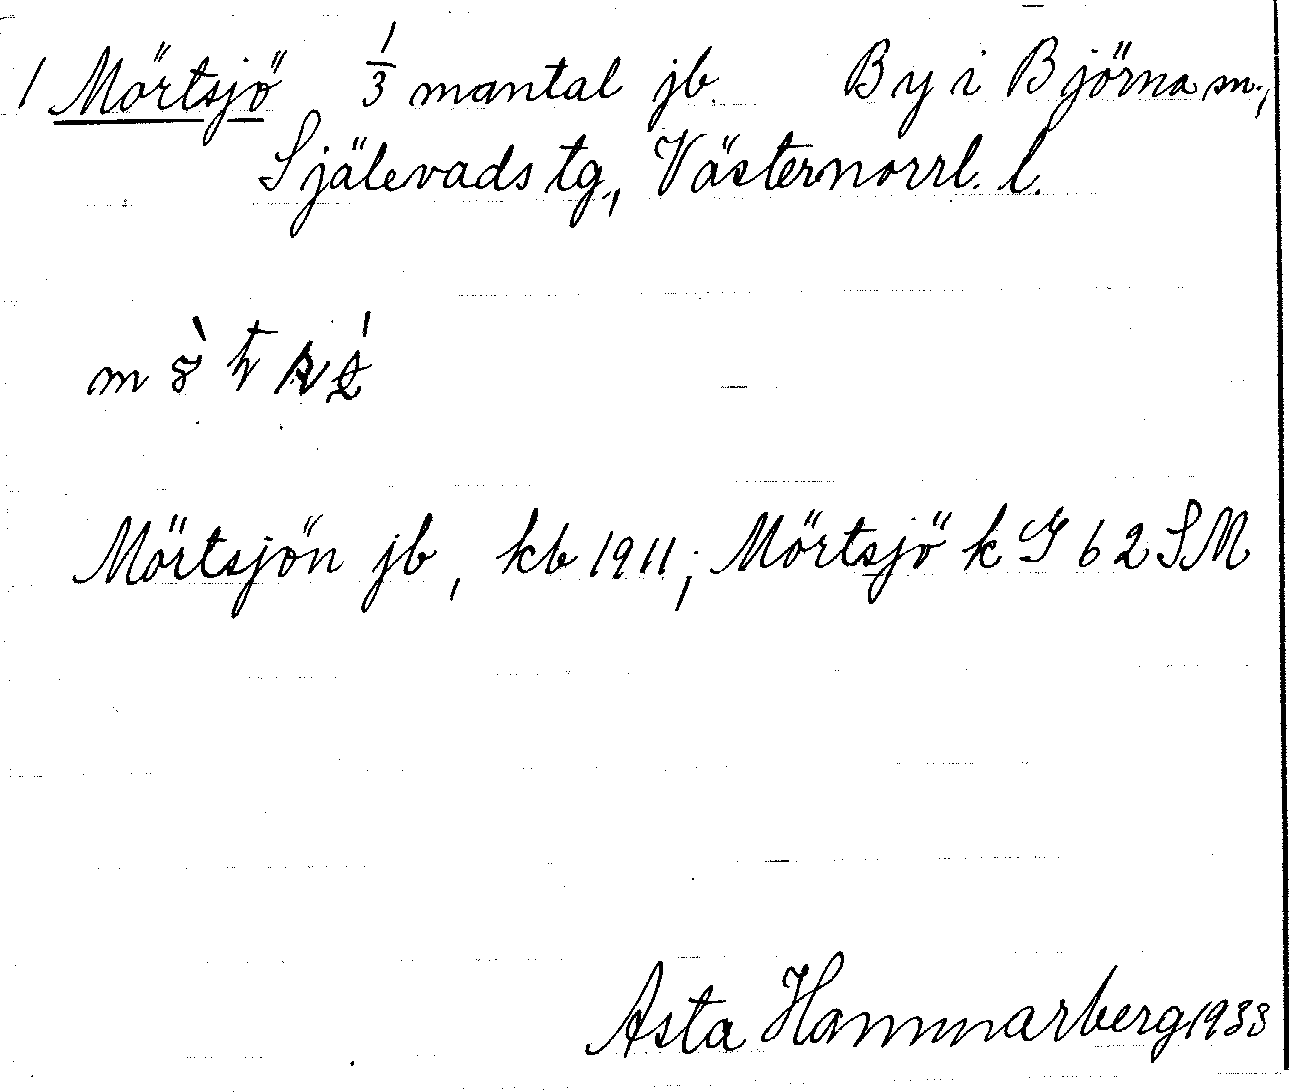 1 Mörtsjö 1/3 mantal jb. By i Björna sn.,
Själevads tg., Västernorrl. l.
Mörtsjön jb, kb 1911; Mörtsjö k G 62 SM
Asta Hammarberg 1933